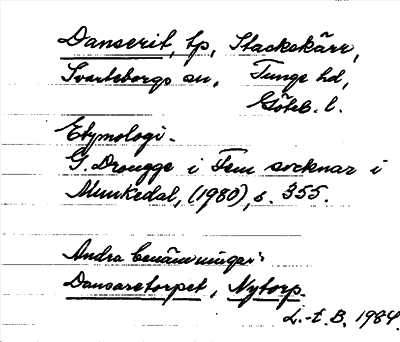 Danserit, tp, Stackekärr,
Svarteborgs sn, Tunge hd,
Göteb. l.
Etymologi.
G. Drougge i Fem socknar i
Munkedal, (1980), s. 355.
Andra benämningar:
Dansaretorpet, Nytorp.
L.-E. B. 1984.